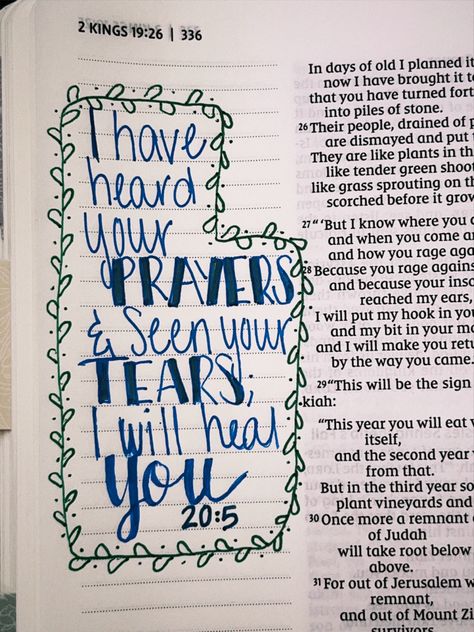 2 KINGS 19:26 | 336
I have
heard
your
PRAYERS
& Seen your
TEARS;
I will heal
you
20:5
In days of old I planned it
now I have brought it to
that you have turned fort
into piles of stone.
26 Their people, drained of p
are dismayed and put t
They are like plants in th
like tender green shoot
like grass sprouting on th
scorched before it grow
27 "'But I know where you a
and when you come an
and how you rage aga
28 Because you rage against
and because your inso
reached my ears,
I will put my hook in you
and my bit in your m
and I will make you retu
by the way you came.
29 "This will be the sign
kiah:
"This year you will eat w
itself,
and the second year
from that.
But in the third year so
plant vineyards and
30 Once more a remnant
of Judah
will take root below
above.
31 For out of Jerusalem w
remnant,
and out of Mount Zi
survivors